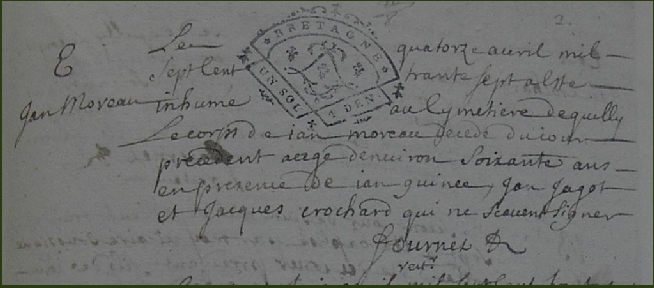 2.
E
Jan Moreau
Le quatorze avril mil
sept cent trante sept a este
inhumé au cymetiere de quilly
Le corps de ian moreau decedé du iour
precedent aegé denviron soixante ans
en presence de ian guinee, Jan Jagot
et Jacques crochard qui ne scavent signer
BRETAGNE
UN SOL 4 DEN
Fournex